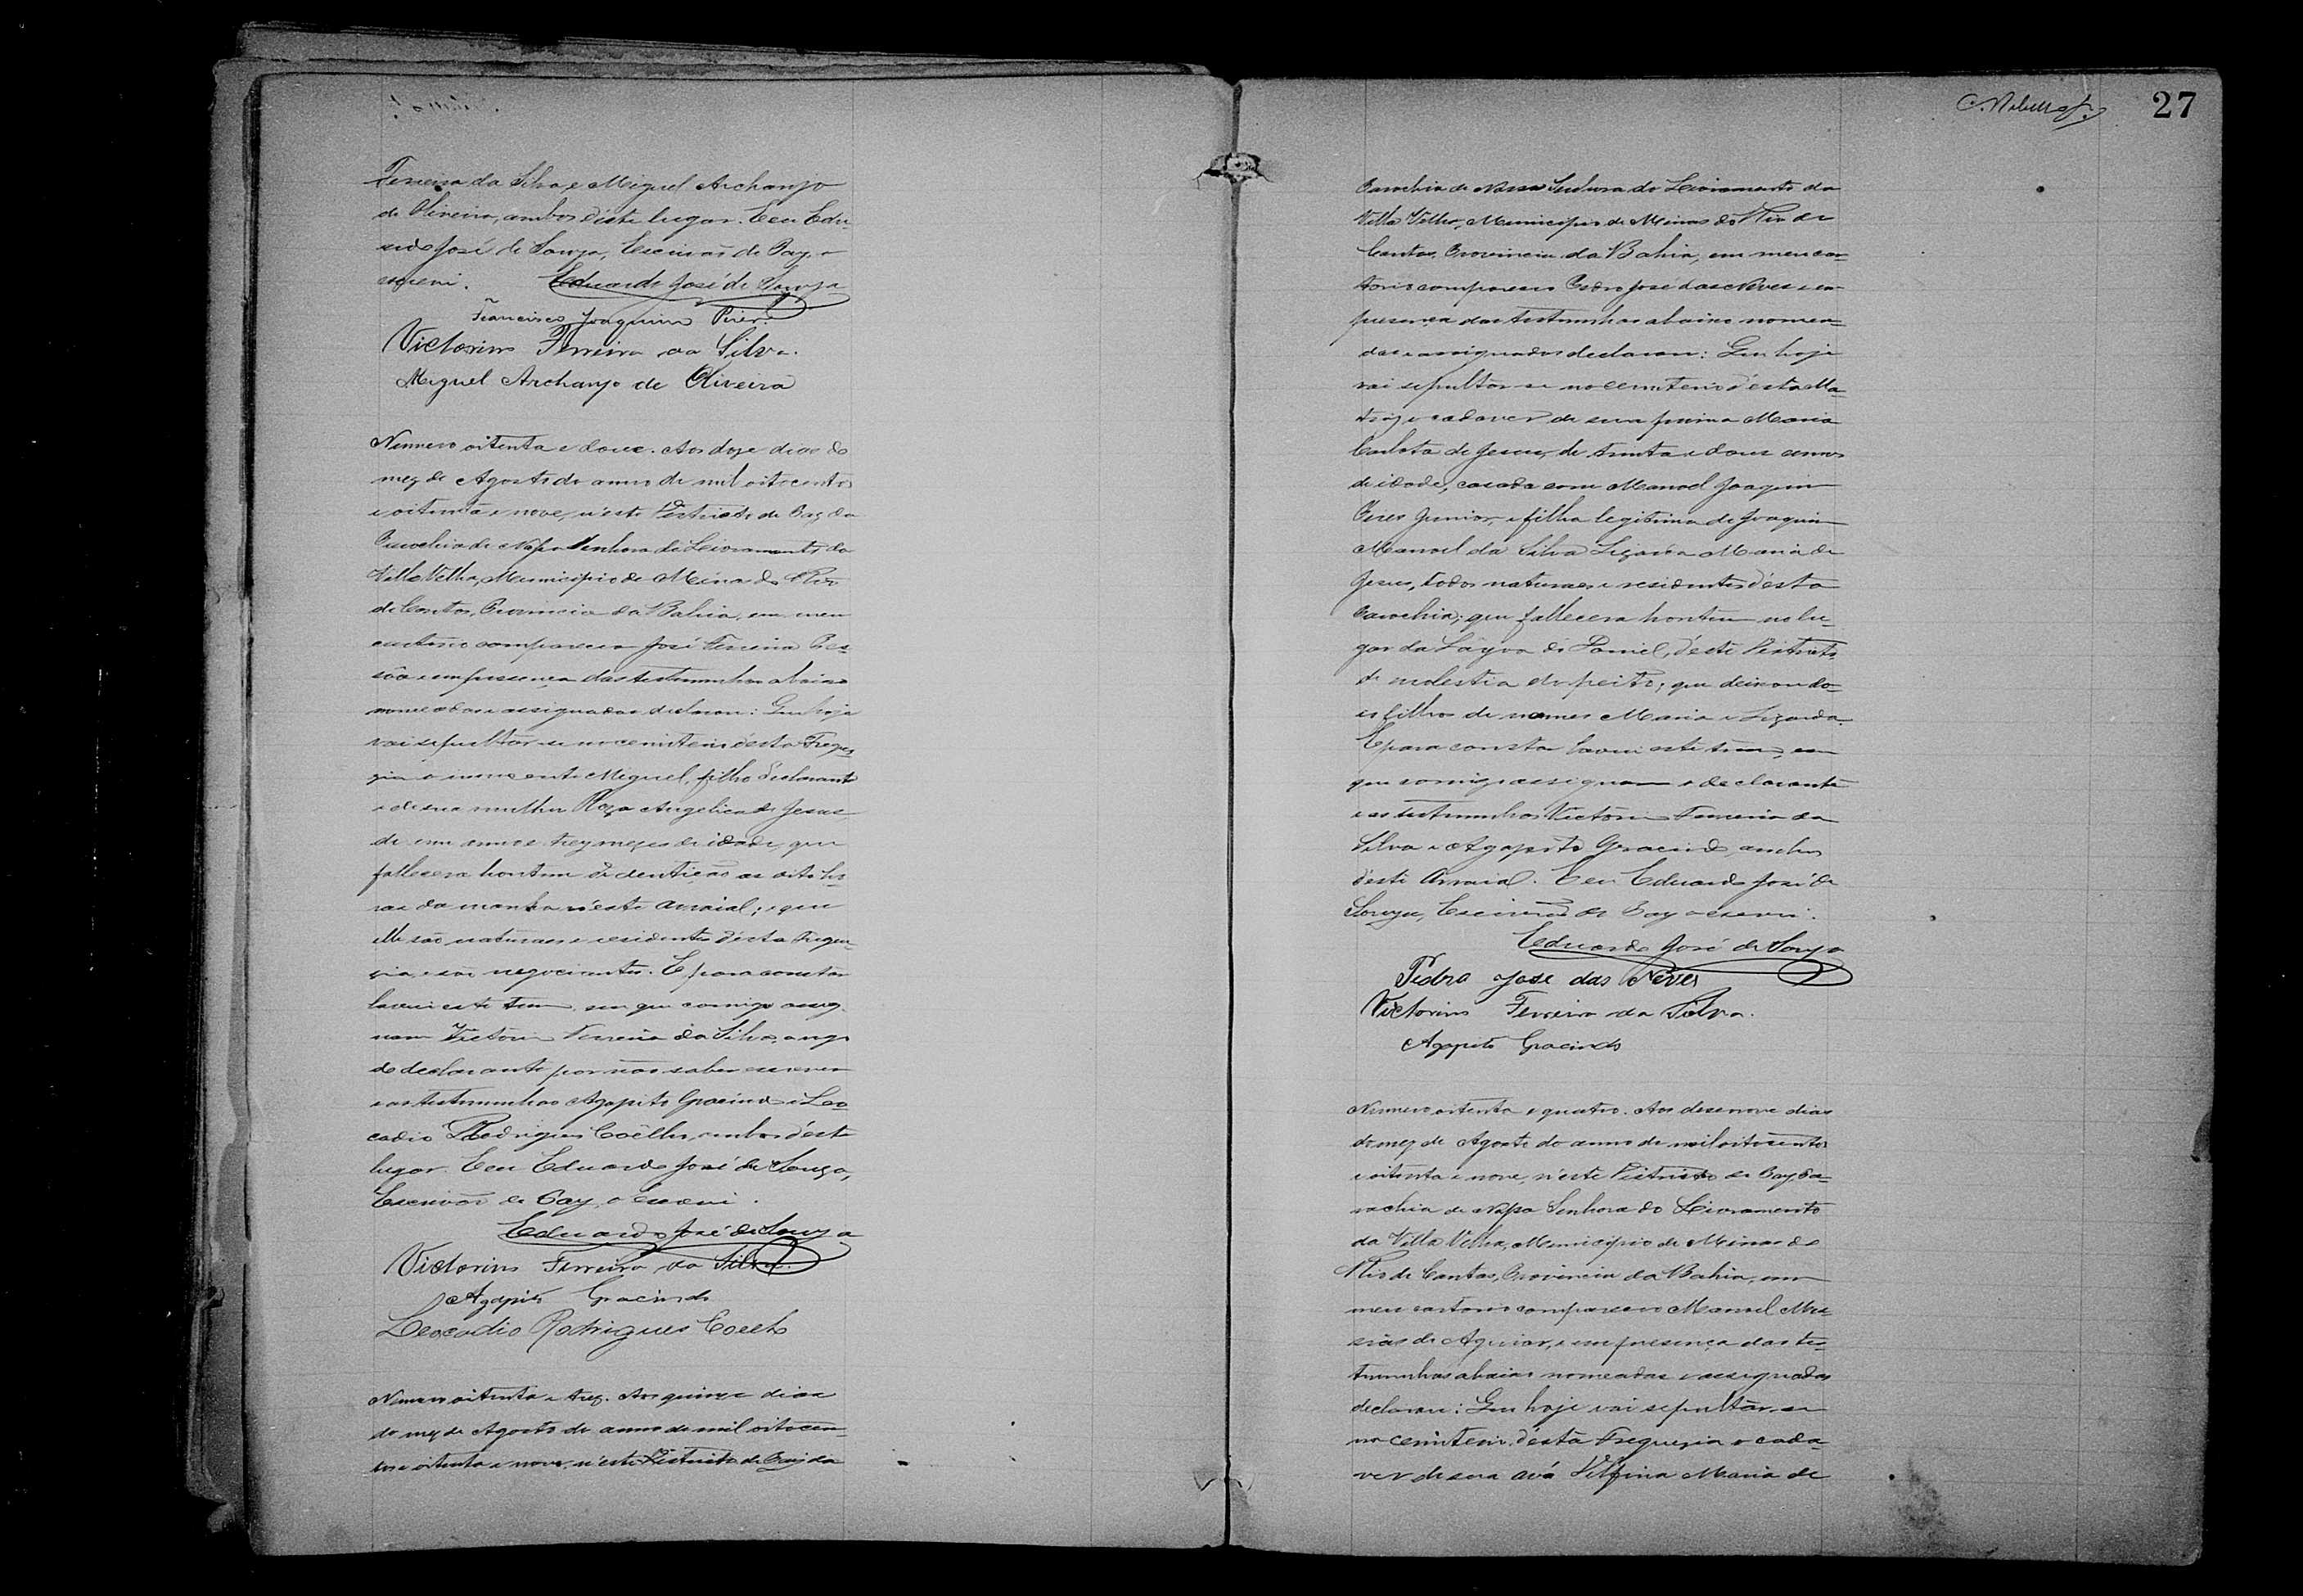 Ferreira da Silva, e Miguel Archanjo
de Oliveira, ambos d'este lugar. E eu Edu-
ardo José de Souza, Escrivão de Paz, o
escrevi. Eduardo José de Souza
Francisco Joaquim Pires
Victorino Ferreira da Silva.
Miguel Archanjo de Oliveira
Numero oitenta e dous. Aos doze dias do
mez de Agosto do anno de mil oitocentos
e oitenta e nove, n'este Districto de Paz da
Parochia de Nossa Senhora do Livramento da
Villa Velha, Municipio de Minas do Rio
de Contas, Provincia da Bahia, em meu
cartorio compareceu José Ferreira Pes-
sôa e em presença das testemunhas abaixo
nomeadas e assignadas declarou: Que hoje
vai sepultar-se no cemiterio d'esta Fregue-
zia o innocente Miguel, filho d'eclarante
e de sua mulher Roza Angelica de Jesus
de um anno e trez mezes de idade, que
fallecera hontem de dentição as oito ho-
ras da manhã n'este arraial; e que
elle são naturaes e residentes d'esta Fregue-
zia, e são negociantes. E para constar
lavrei este termo em que comigo assig-
nam Victorino Ferreira da Silva, a rogo
do declarante por não saber escrever
e as testemunhas Agapito Gracindo e Leo-
cadio Rodrigues Coêlho, ambos d'este
lugar. E eu Eduardo José de Souza,
Escrivão de Paz, o escrevi.
Eduardo José de Souza
Victorino Ferreira da Silva.
Agapito Gracindo
Leocadio Rodrigues Coelho
Numero oitenta e trez. Aos quinze dias
do mez de Agosto do anno de mil oitocen-
tos e oitenta e nove, n'este Districto de Paz da
27
Parochia de Nossa Senhora do Livramento da
Villa Velha, Municipio de Minas do Rio de
Contas, Provincia da Bahia, em meu car-
torio compareceu Pedro José das Neves e em
presença das testemunhas abaixo nomea-
das e assignadas declarou: Que hoje
vai sepultar-se no cemiterio d'esta Ma-
triz o cadaver de sua prima Maria
Carlota de Jesus, de trinta e dous annos
de idade, casada com Manoel Joaquim
Pires Junior, e filha legitima de Joaquim
Manoel da Silva Maria de
Jesus, todos naturaes e residentes d'esta
Parochia; que fallecera hontem no lu-
gar da Lagôa de Daniel, d'este Districto
de molestia do peito; que deixou do-
is filhos de nomes Maria e
E para constar lavrei este termo, em
que comigo assignam o declarante
e as testemunhas Victorino Ferreira da
Silva e Agapito Gracindo, ambos
d'este Arraial. E eu Eduardo José de
Souza, Escrivão de Paz o escrevi.
Eduardo José de Souza
Pedro José das Neves
Victorino Ferreira da Silva.
Agapito Gracindo
Numero oitenta e quatro. Aos desenove dias
do mez de Agosto do anno de mil oitocentos
e oitenta e nove, n'este Districto de Paz, Pa-
rochia de Nossa Senhora do Livramento
da Villa Velha, Municipio de Minas do
Rio de Contas, Provincia da Bahia, em
meu cartorio compareceu Manoel Mes-
sias de Aguiar, e em presença das tes-
temunhas abaixo nomeadas e assignadas
declarou: Que hoje vai sepultar-se
no cemiterio d'esta Freguezia o cada-
ver de sua avó Delfina Maria de